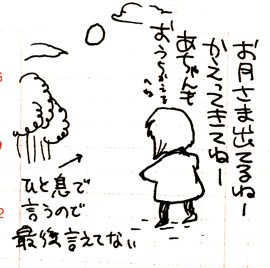 お月さま出てるねー
かえってきてねー
あちゃんも
おうちかえる
ひと息で
言うので
最後言えてない
6
2